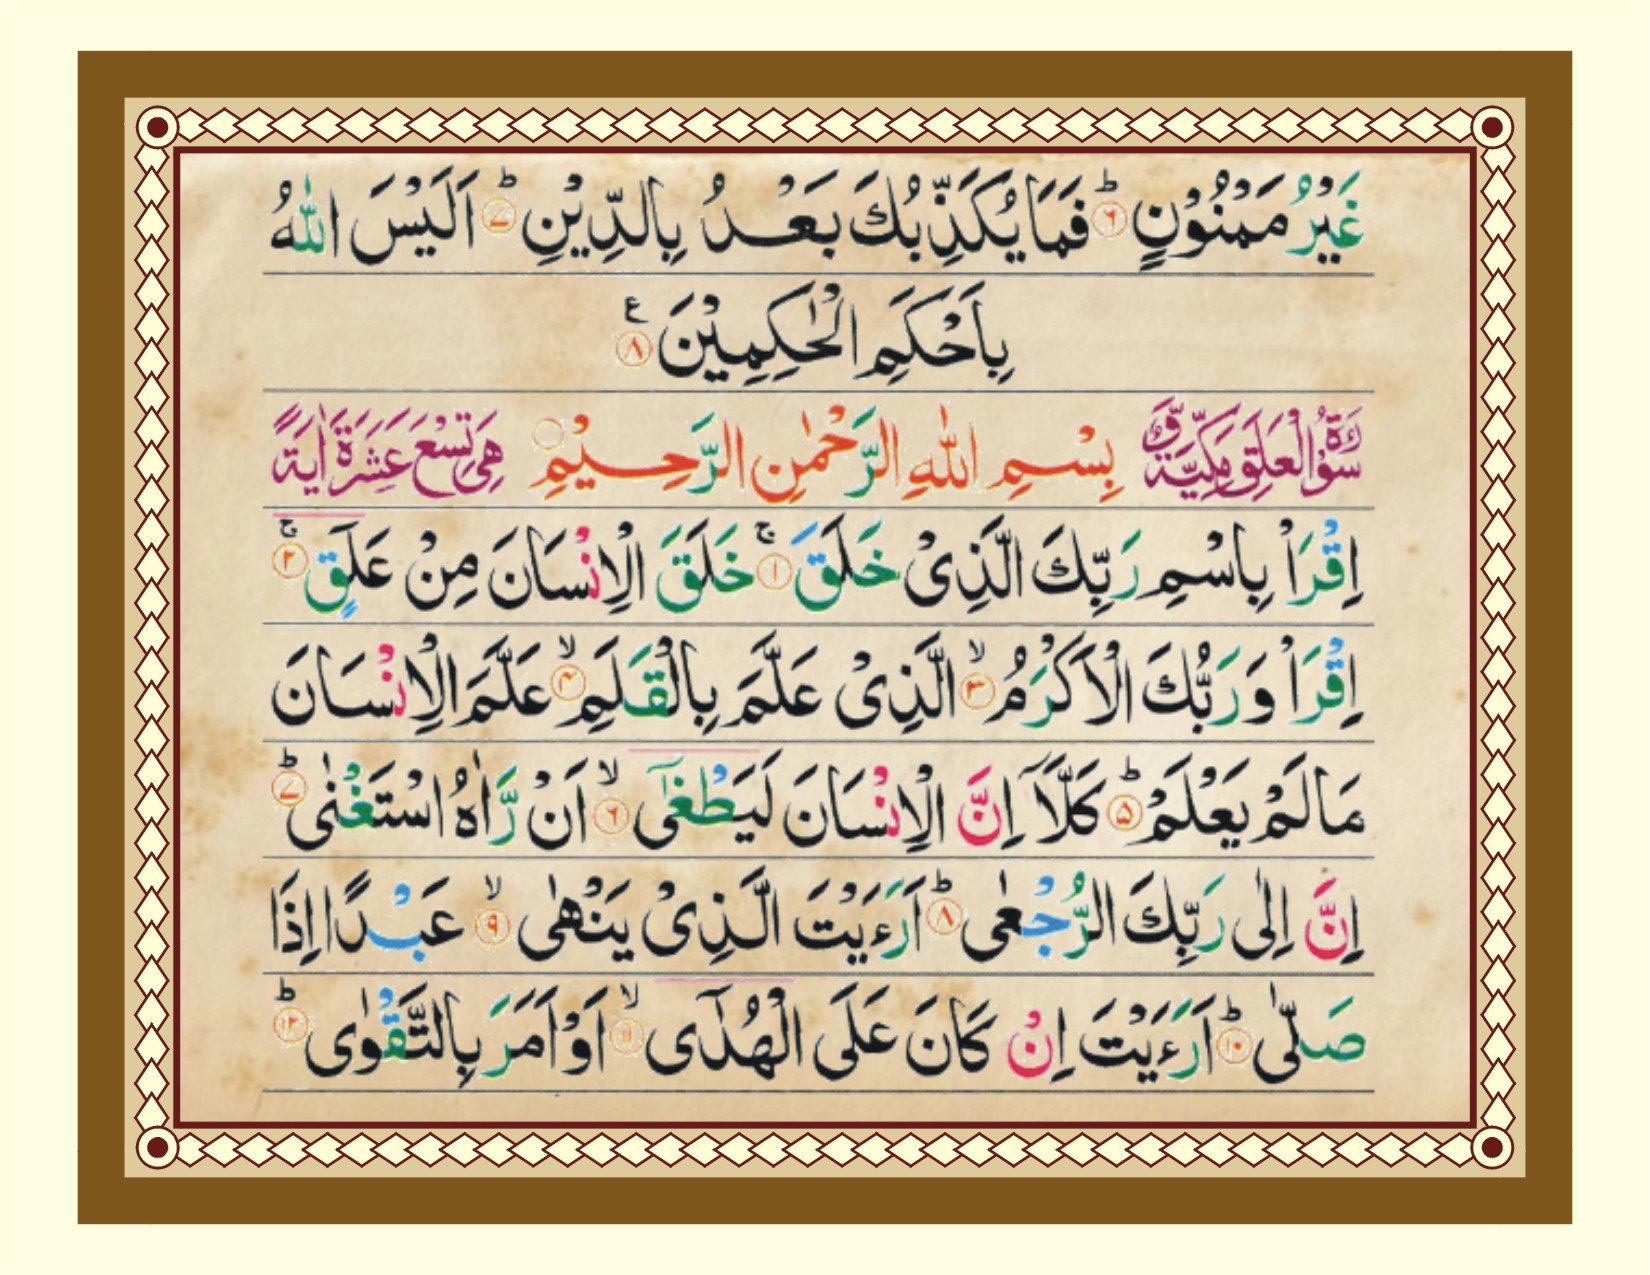 غَيْرُ مَمْنُوْنٍ ؕ﴿۶﴾ فَمَا يُكَذِّبُكَ بَعْدُ بِالدِّيْنِ ؕ﴿۷﴾ اَلَيْسَ اللّٰهُ
بِاَحْكَمِ الْحٰكِمِيْنَ ﴿۸﴾ ع
سُوْرَةُ الْعَلَقِ مَكِّيَّةٌ وَّ بِسْمِ اللّٰهِ الرَّحْمٰنِ الرَّحِيْمِ هِيَ تِسْعَ عَشَرَةَ اٰيَةً
اِقْرَاْ بِاسْمِ رَبِّكَ الَّذِىْ خَلَقَ ۚ﴿۱﴾ خَلَقَ الْاِنْسَانَ مِنْ عَلَقٍ ۚ﴿۲﴾
اِقْرَاْ وَرَبُّكَ الْاَكْرَمُ ۙ﴿۳﴾ الَّذِىْ عَلَّمَ بِالْقَلَمِ ۙ﴿۴﴾ عَلَّمَ الْاِنْسَانَ
مَالَمْ يَعْلَمْ ؕ﴿۵﴾ كَلَّاۤ اِنَّ الْاِنْسَانَ لَيَطْغٰٓى ۙ﴿۶﴾ اَنْ رَّاٰهُ اسْتَغْنٰى ؕ﴿۷﴾
اِنَّ اِلٰى رَبِّكَ الرُّجْعٰى ؕ﴿۸﴾ اَرَءَيْتَ الَّذِىْ يَنْهٰى ۙ﴿۹﴾ عَبْدًا اِذَا
صَلّٰى ؕ﴿۱۰﴾ اَرَءَيْتَ اِنْ كَانَ عَلَى الْهُدٰٓى ۙ﴿۱۱﴾ اَوْ اَمَرَ بِالتَّقْوٰى ؕ﴿۱۲﴾